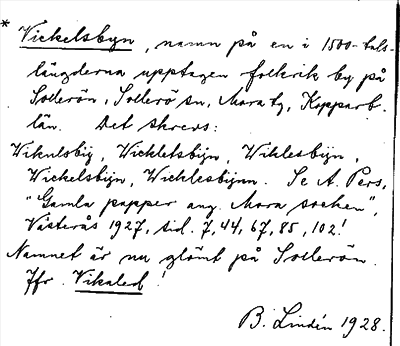 * Vickelsbyn, namn på en i 1500-tals-
längderna upptagen folkrik by på
Sollerön, Sollerö sn, Mora tg, Kopparb.
län. Det skrevs:
Wikulsbÿ, Wickletsbÿn, Wiklesbÿn,
Wickelsbÿn, Wicklesbÿnn. Se A. Pers,
"Gamla papper ang. Mora socken",
Västerås 1927, sid. 7, 44, 67, 85, 102!
Namnet är nu glömt på Sollerön.
Jfr. Vikaled!
B. Lindén 1928.